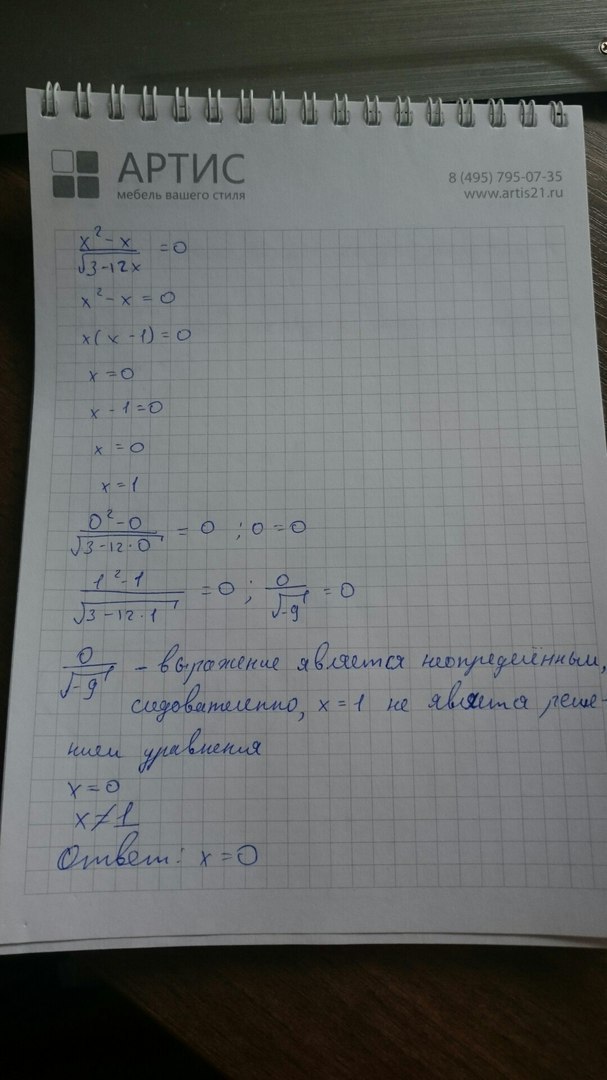 АРТИС
мебель вашего стиля
8 (495) 795-07-35
www.artis21.ru
(x²-x)/√(3-12x) = 0
x²-x=0
x(x-1)=0
x=0
x-1=0
x=0
x=1
(0²-0)/√(3-12·0) = 0 ; 0=0
(1²-1)/√(3-12·1) = 0 ; 0/√(-9) = 0
0/√(-9) - выражение является неопределённым,
следователенно, x=1 не является реше-
нием уравнения
x=0
x≠1
Ответ: x=0